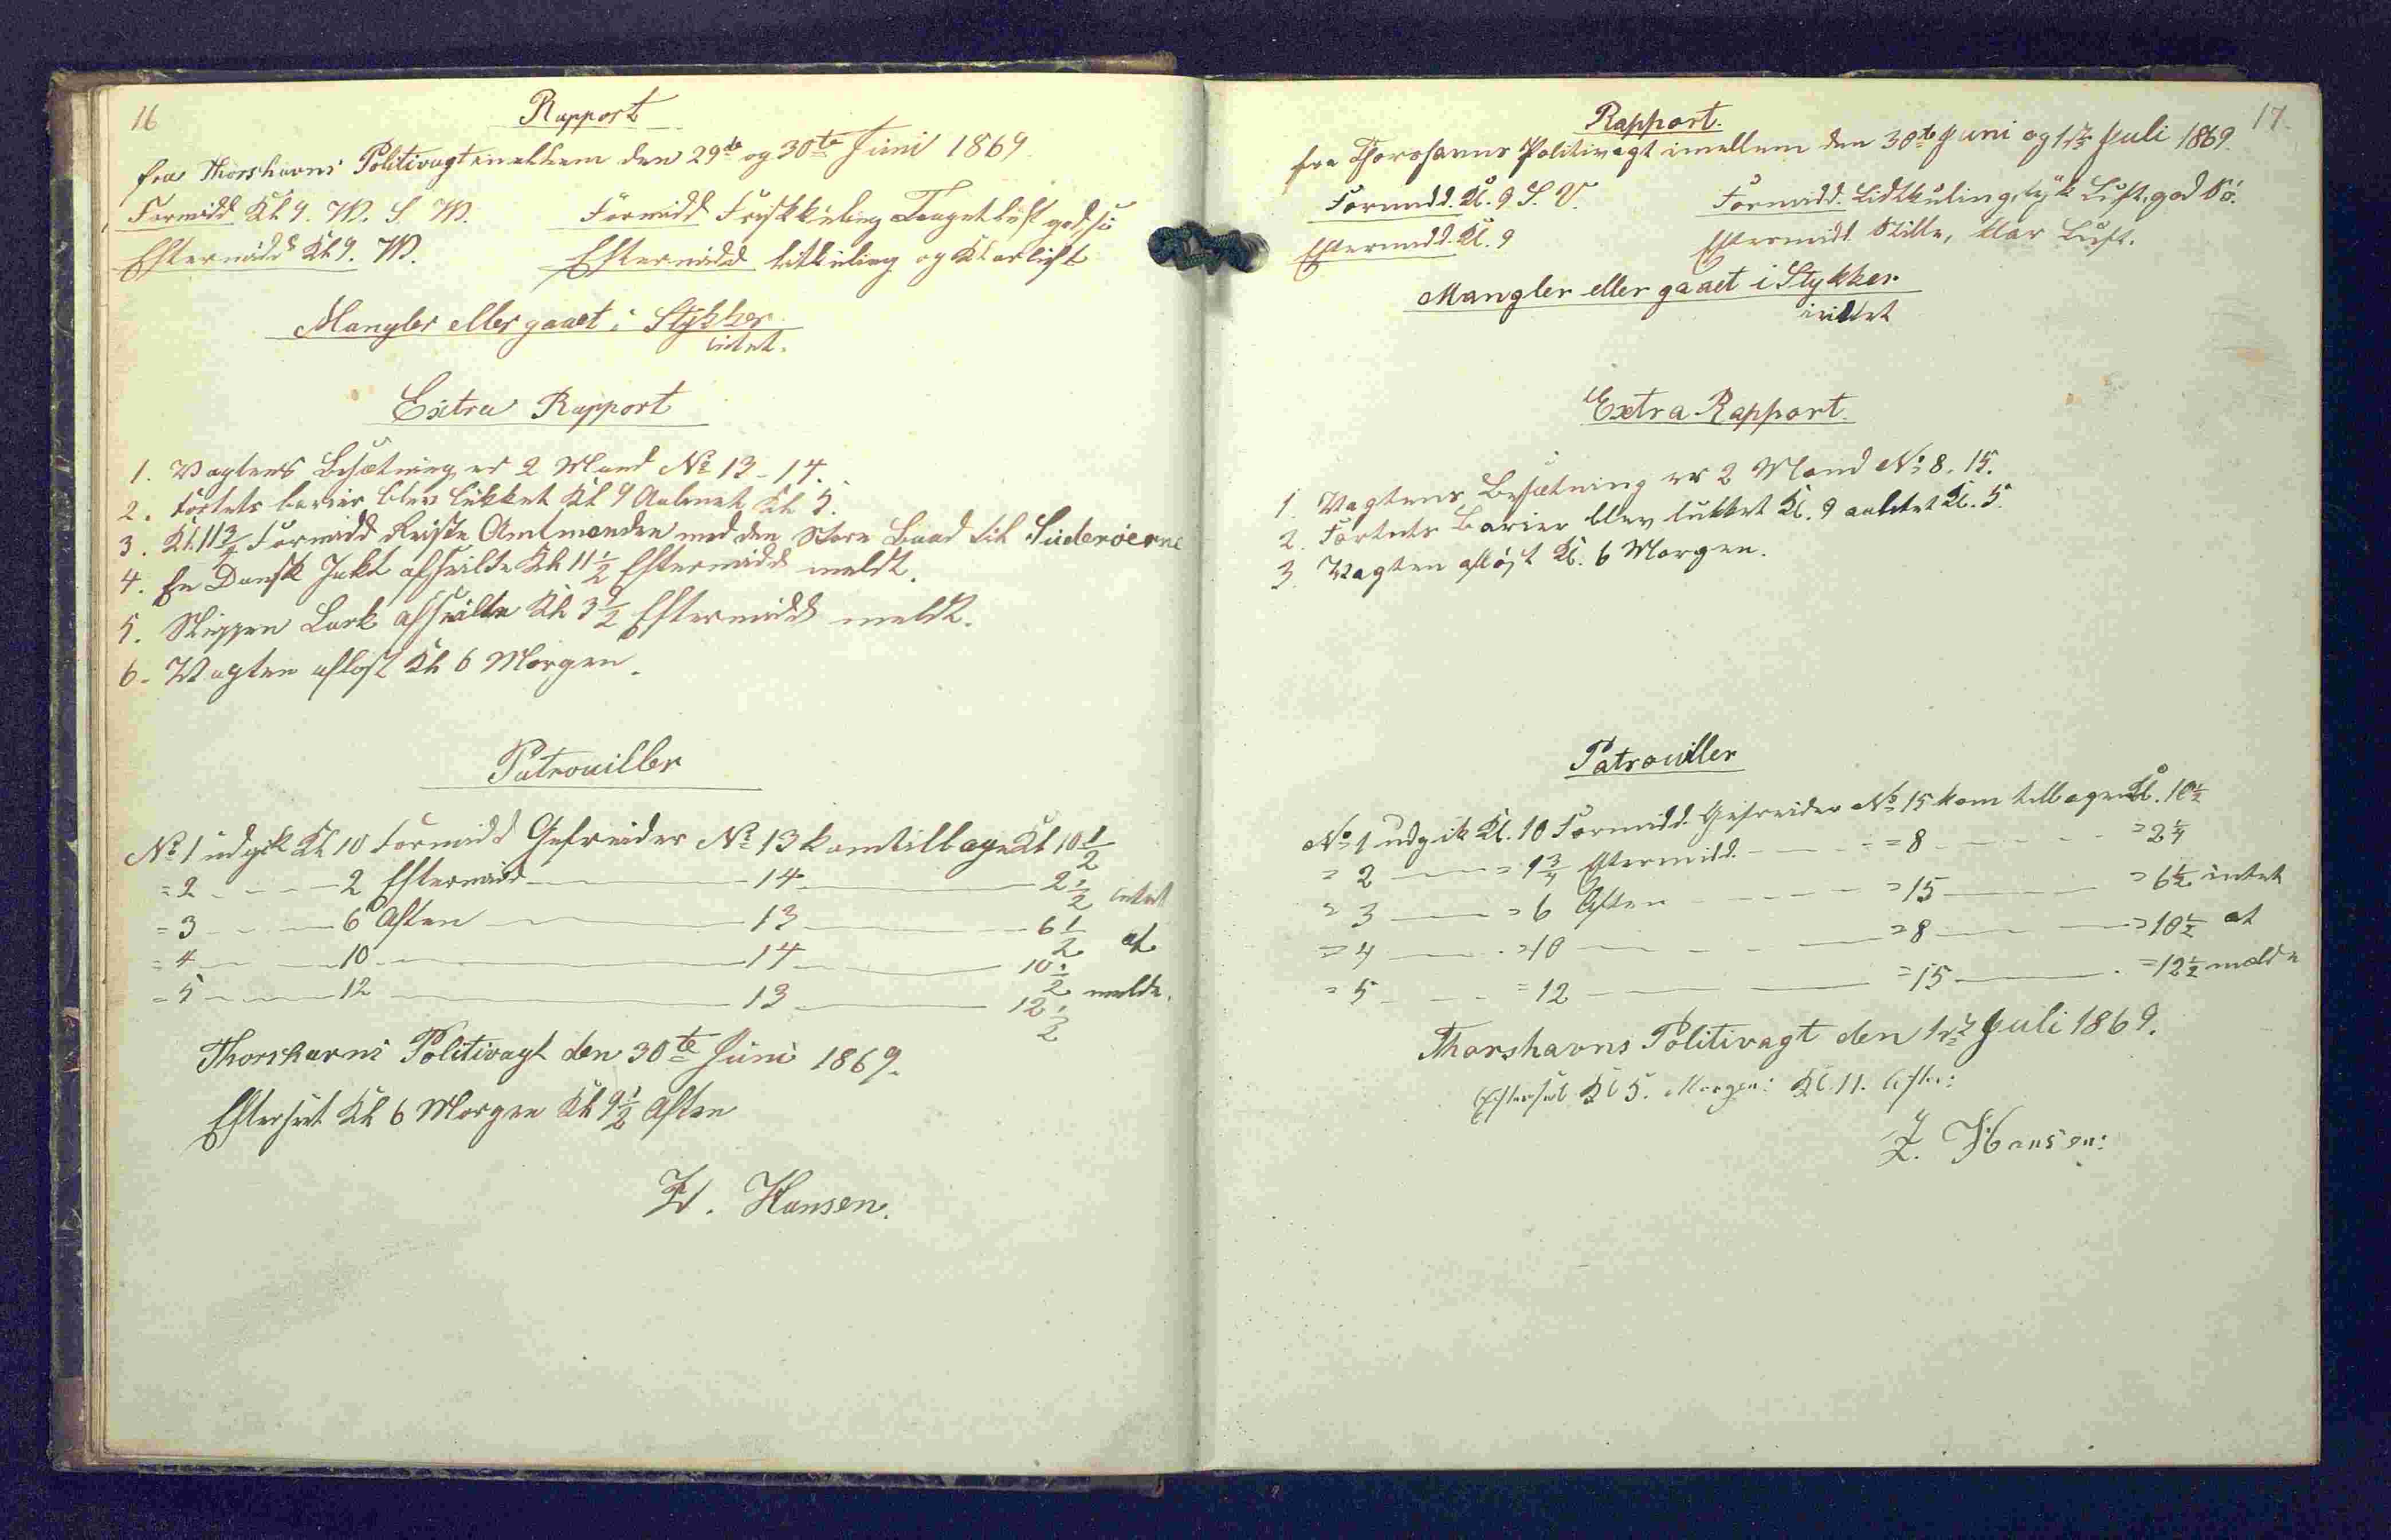 16
Rapport
fra Thorshavns Politivagt imellem den 29de og 30te Juni 1869
Formidd Kl 9. W. S. W. Formidd Friskkuling Taaget luft god sø
Eftermidd Kl 9. W. Eftermidd litkuling og Klar luft
Mangler eller gaaet i Stykker
intet.
Extra Rapport
1. Vagtens Besætning er 2 Mand No 13 - 14.
2. Fortets barier blev lukket Kl 9 Aabnet Kl 5.
3. Kl 11 3/4 Formidd Reiste Amtmanden med den Store Baad til Suderøerne
4. En Dansk Jakt afseilte Kl 11 1/2 Eftermidd meldt.
5. Skippen Lark afseilte Kl 3 1/2 Eftermidd meldt.
6. Vagten afløst Kl 6 Morgen.
Patrouiller
No 1 udgik Kl 10 Formidd Gefreider No 13 kom tilbage Kl 10 1/2
= 2 - - - 2 Eftermidd - 14 - 2 1/2 intet
= 3 - - - 6 Aften - 13 - 6 1/2 at
= 4 - - 10 - 14 - 10 1/2 melde.
= 5 - - - 12 - 13 - 12 1/2
Thorshavns Politivagt den 30te Juni 1869.
Efterset Kl 6 Morgen Kl 9 1/2 Aften
W. Hansen.
17.
Rapport.
fra Thorshavns Politivagt imellem den 30te Juni og 1ste Juli 1869.
Formidd. Kl. 9 S. V. Formidd. Lidtkuling, tyk Luft, god Sö.
Eftermidd. Kl. 9 Eftermidd. Stille, klar Luft.
Mangler eller gaaet i Stykker
intet
Extra Rapport.
1. Vagtens Besætning er 2 Mand No. 8. 15.
2. Fortets Barier blev lukket Kl. 9 aabnet Kl. 5.
3. Vagten afløst Kl. 6 Morgen.
Patrouiller
No. 1 udgik Kl. 10 Formidd. Gefreider No. 15 kom tilbage Kl. 10 1/2
= 2 - = 1 3/4 Eftermidd. - - = 8 - - = 2 1/4
= 3 - = 6 Aften - - - = 15 - = 6 1/2 intet
= 4 - = 10 - - = 8 - = 10 1/2 at
= 5 - - = 12 - - = 15 - = 12 1/2 melde
Thorshavns Politivagt den 1ste Juli 1869.
Efterset Kl 5. Morgen: Kl. 11. Aften:
Z. Hansen: